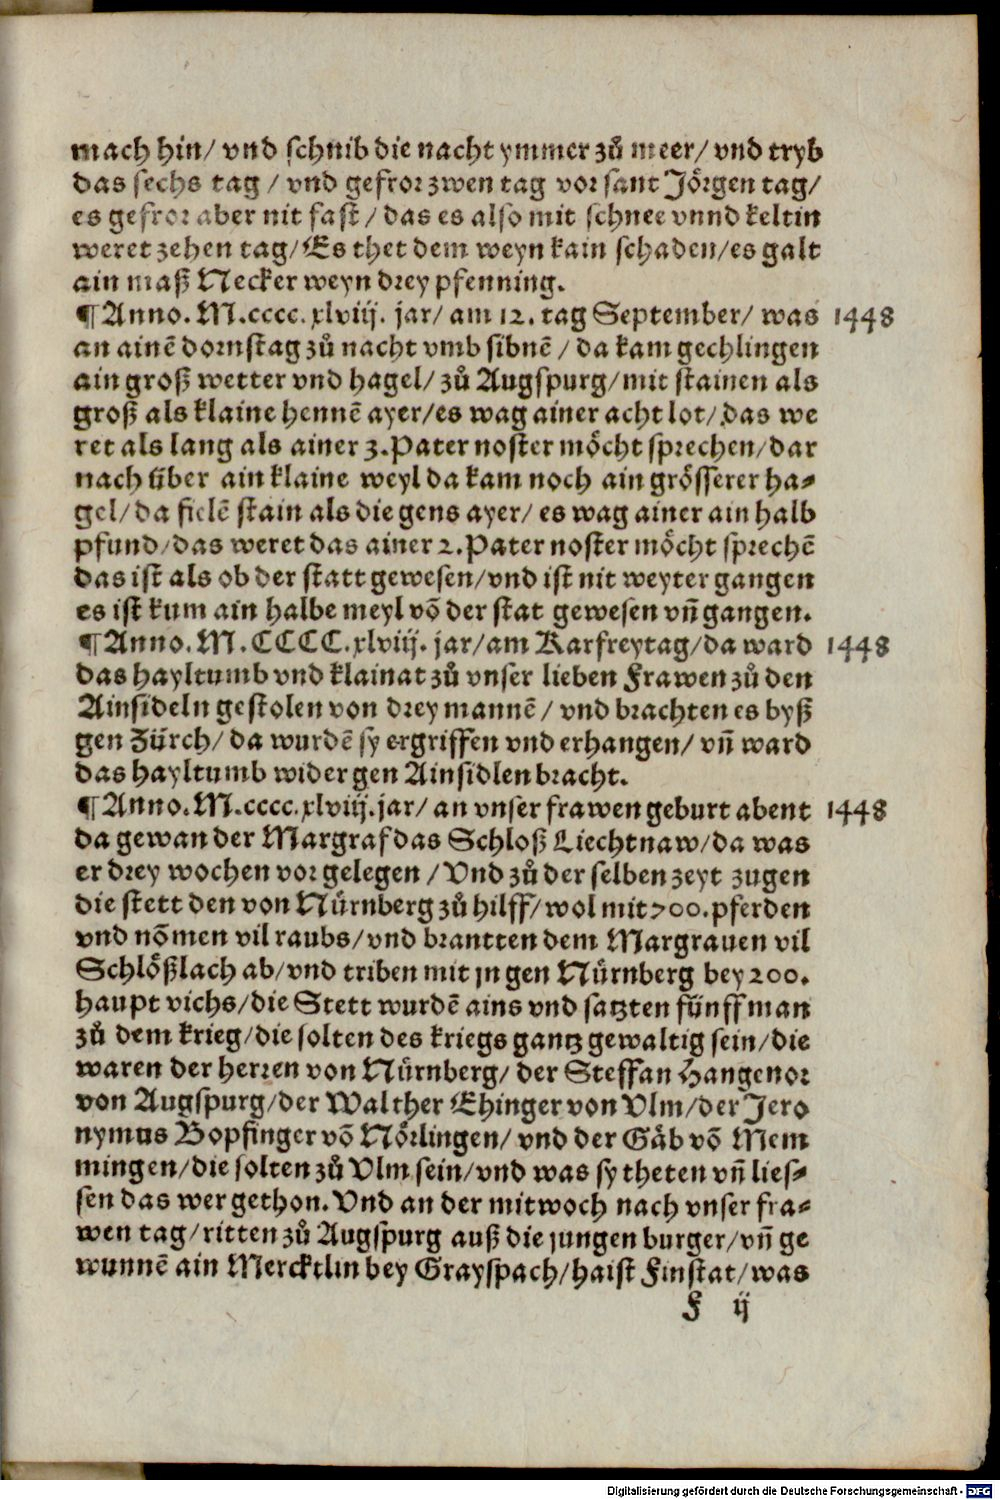 mach hin/ vnd schnib die nacht ymmer zů meer/ vnd tryb
das sechs tag / vnd gefror zwen tag vor sant Jörgen tag/
es gefror aber nit fast / das es also mit schnee vnnd keltin
weret zehen tag/ Es thet dem weyn kain schaden/ es galt
ain maß Necker weyn drey pfenning.
¶ Anno. M.cccc. xlviij. jar/ am 12. tag September/ was 1448
an ainē dornstag zů nacht vmb sibnē / da kam gechlingen
ain groß wetter vnd hagel/ zů Augspurg/ mit stainen als
groß als klaine hennē ayer/ es wag ainer acht lot/ das we
ret als lang als ainer 3. Pater noster möcht sprechen/ dar
nach über ain klaine weyl da kam noch ain grösserer ha-
gel/ da fielē stain als die gens ayer/ es wag ainer ain halb
pfund/ das weret das ainer 2. Pater noster möcht sprechē
das ist als ob der statt gewesen/ vnd ist nit weyter gangen
es ist kum ain halbe meyl võ der stat gewesen vñ gangen.
¶ Anno. M. CCCC. xlviij. jar/ am Karfreytag/ da ward 1448
das hayltumb vnd klainat zů vnser lieben Frawen zů den
Ainsideln gestolen von drey mannē / vnd brachten es byß
gen Zürch/ da wurdē sy ergriffen vnd erhangen/ vñ ward
das hayltumb wider gen Ainsidlen bracht.
¶ Anno. M.cccc. xlviij. jar/ an vnser frawen geburt abent 1448
da gewan der Margraf das Schloß Liechtnaw/ da was
er drey wochen vor gelegen / Vnd zů der selben zeyt zugen
die stett den von Nürnberg zů hilff/ wol mit 700. pferden
vnd nõmen vil raubs/ vnd brantten dem Margrauen vil
Schlößlach ab/ vnd triben mit jn gen Nürnberg bey 200.
haupt vichs/ die Stett wurdē ains vnd satzten fünff man
zů dem krieg/ die solten des kriegs gantz gewaltig sein/ die
waren der herren von Nürnberg/ der Steffan Hangenor
von Augspurg/ der Walther Ehinger von Vlm/ der Jero
nymus Bopfinger võ Nörlingen/ vnd der Gäb võ Mem
mingen/ die solten zů Vlm sein/ vnd was sy theten vñ lies-
sen das wer gethon. Vnd an der mitwoch nach vnser fra-
wen tag/ ritten zů Augspurg auß die jungen burger/ vñ ge
wunnē ain Mercktlin bey Grayspach/ haist Finstat/ was
F ij
Digitalisierung gefördert durch die Deutsche Forschungsgemeinschaft - DFG